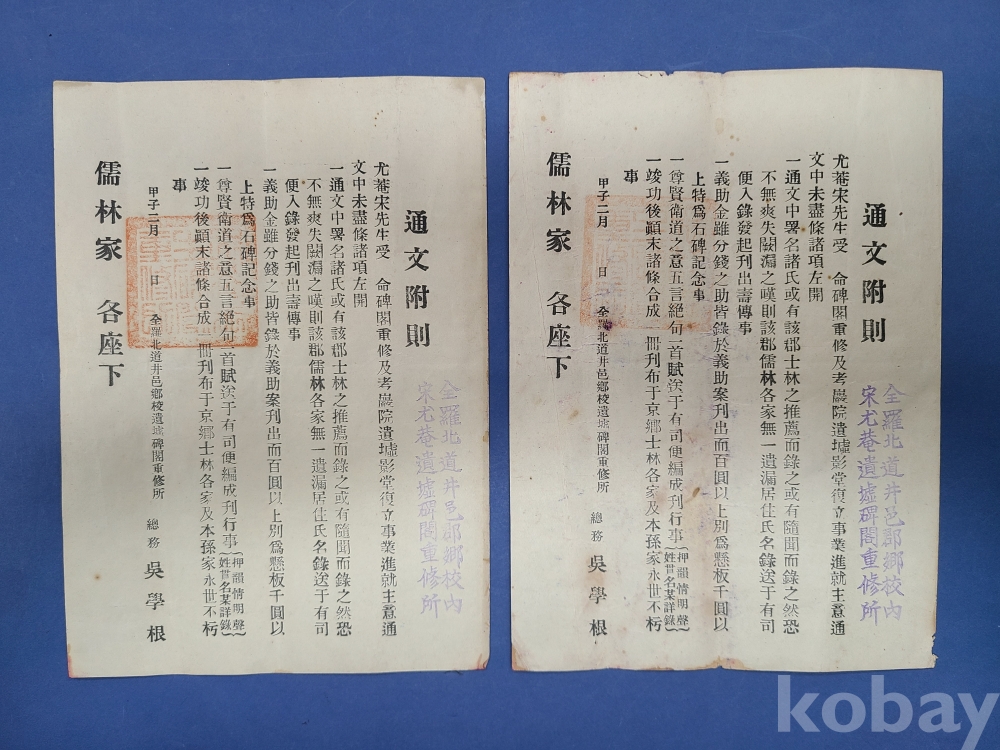 通文附則
尤菴宋先生受　命碑閣重修及考巖院遺墟影堂復立事業進就主意通
文中未盡條諸項左開
一通文中署名諸氏或有該郡士林之推薦而錄之或有隨聞而錄之然恐
不無爽失闕漏之嘆則該郡儒林各家無一遺漏居住氏名錄送于有司
便入錄發起刋出壽傳事
一義助金雖分錢之助皆錄於義助案刋出而百圓以上別爲懸板千圓以
上特爲石碑記念事
一尊賢衛道之意五言絶句一首賦送于有司便編成刋行事(押韻情明聲 姓貫名某詳錄)
一竣功後顚末諸條合成一冊刋布于京鄕士林各家及本孫家永世不朽
事
甲子二月　日　全羅北道井邑鄕校遺墟碑閣重修所
總務　吳學根
儒林家　各座下
全羅北道井邑郡鄕校內
宋尤菴遺墟碑閣重修所
通文附則
尤菴宋先生受　命碑閣重修及考巖院遺墟影堂復立事業進就主意通
文中未盡條諸項左開
一通文中署名諸氏或有該郡士林之推薦而錄之或有隨聞而錄之然恐
不無爽失闕漏之嘆則該郡儒林各家無一遺漏居住氏名錄送于有司
便入錄發起刋出壽傳事
一義助金雖分錢之助皆錄於義助案刋出而百圓以上別爲懸板千圓以
上特爲石碑記念事
一尊賢衛道之意五言絶句一首賦送于有司便編成刋行事(押韻情明聲 姓貫名某詳錄)
一竣功後顚末諸條合成一冊刋布于京鄕士林各家及本孫家永世不朽
事
甲子二月　日　全羅北道井邑鄕校遺墟碑閣重修所
總務　吳學根
儒林家　各座下
全羅北道井邑郡鄕校內
宋尤菴遺墟碑閣重修所
kobay